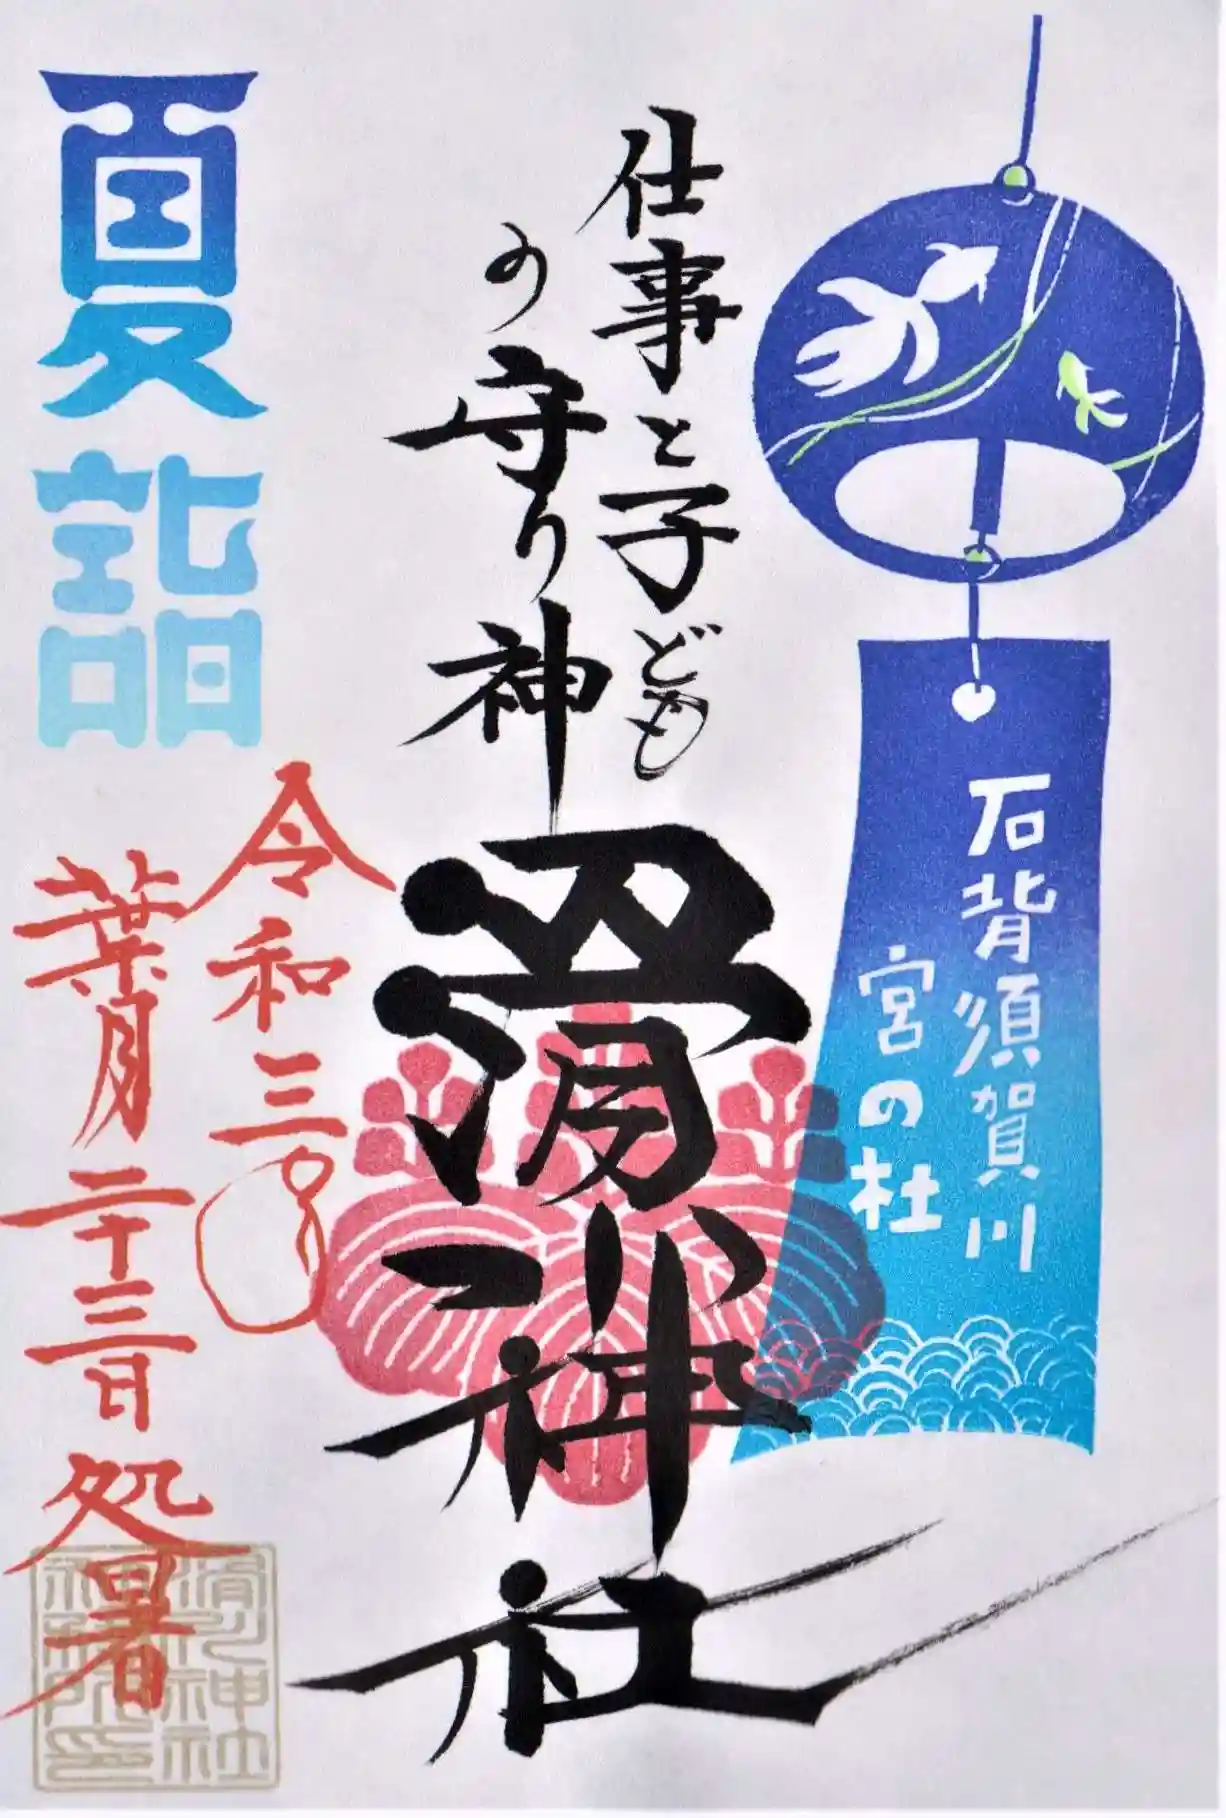 石背須賀川
宮の杜
仕事と子ども
の守り神
滑川神社
夏詣
令和三年
葉月二十三日処暑
滑川神社